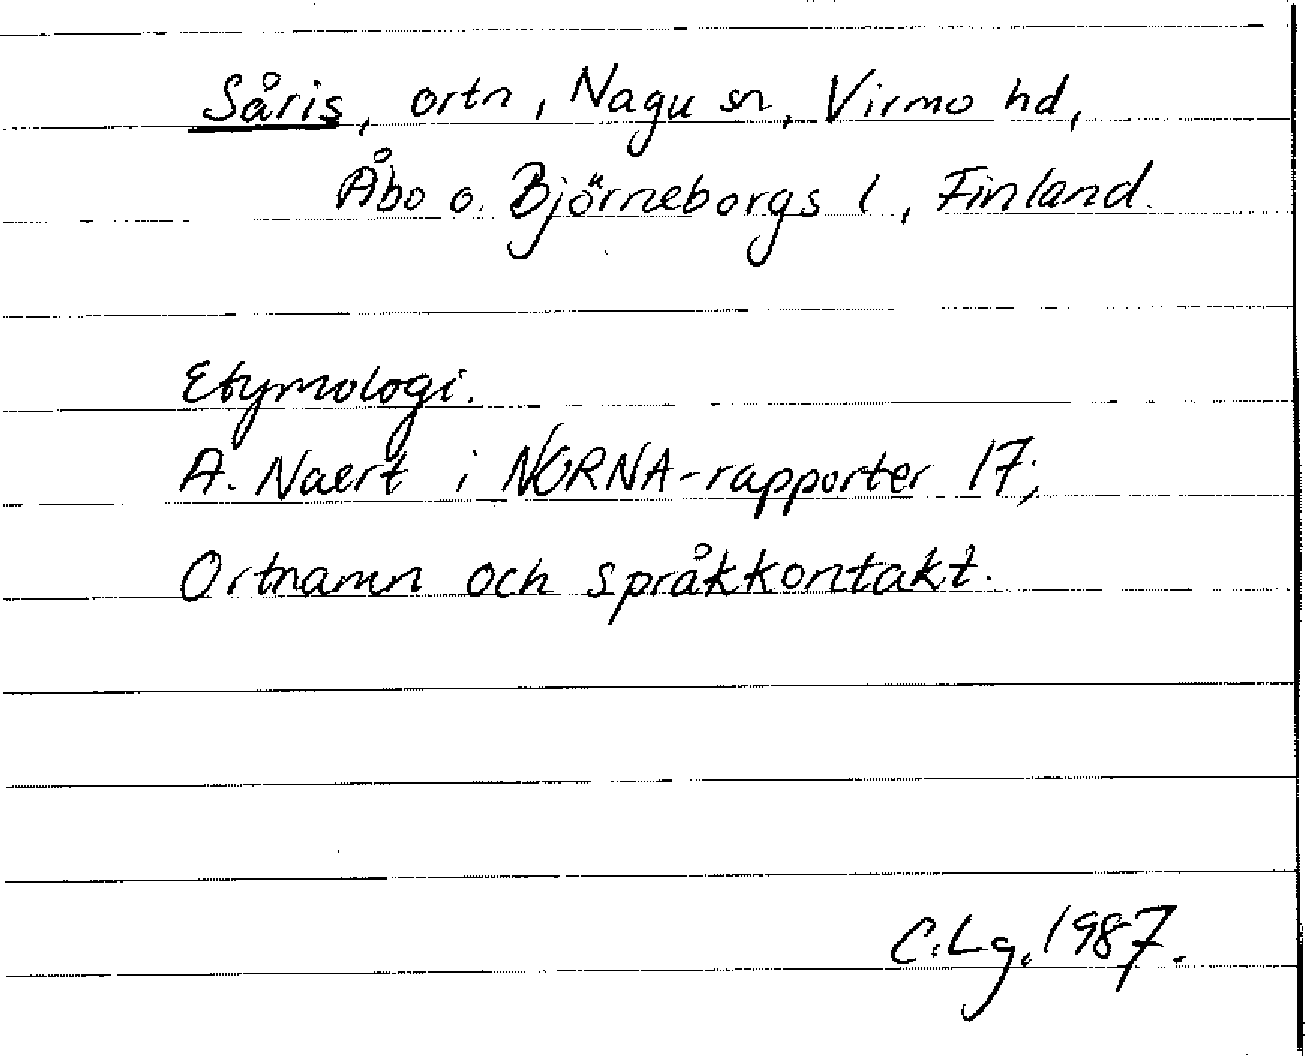 Såris, ortn, Nagu sn, Virmo hd,
Åbo o. Björneborgs l, Finland.
Etymologi.
A. Naert i NORNA-rapporter 17;
Ortnamn och språkkontakt.
C.Lg. 1987.